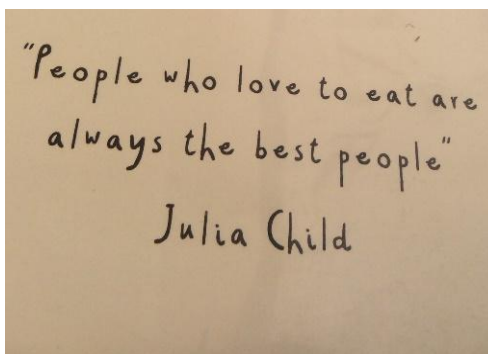 "People who love to eat are
always the best people"
Julia Child